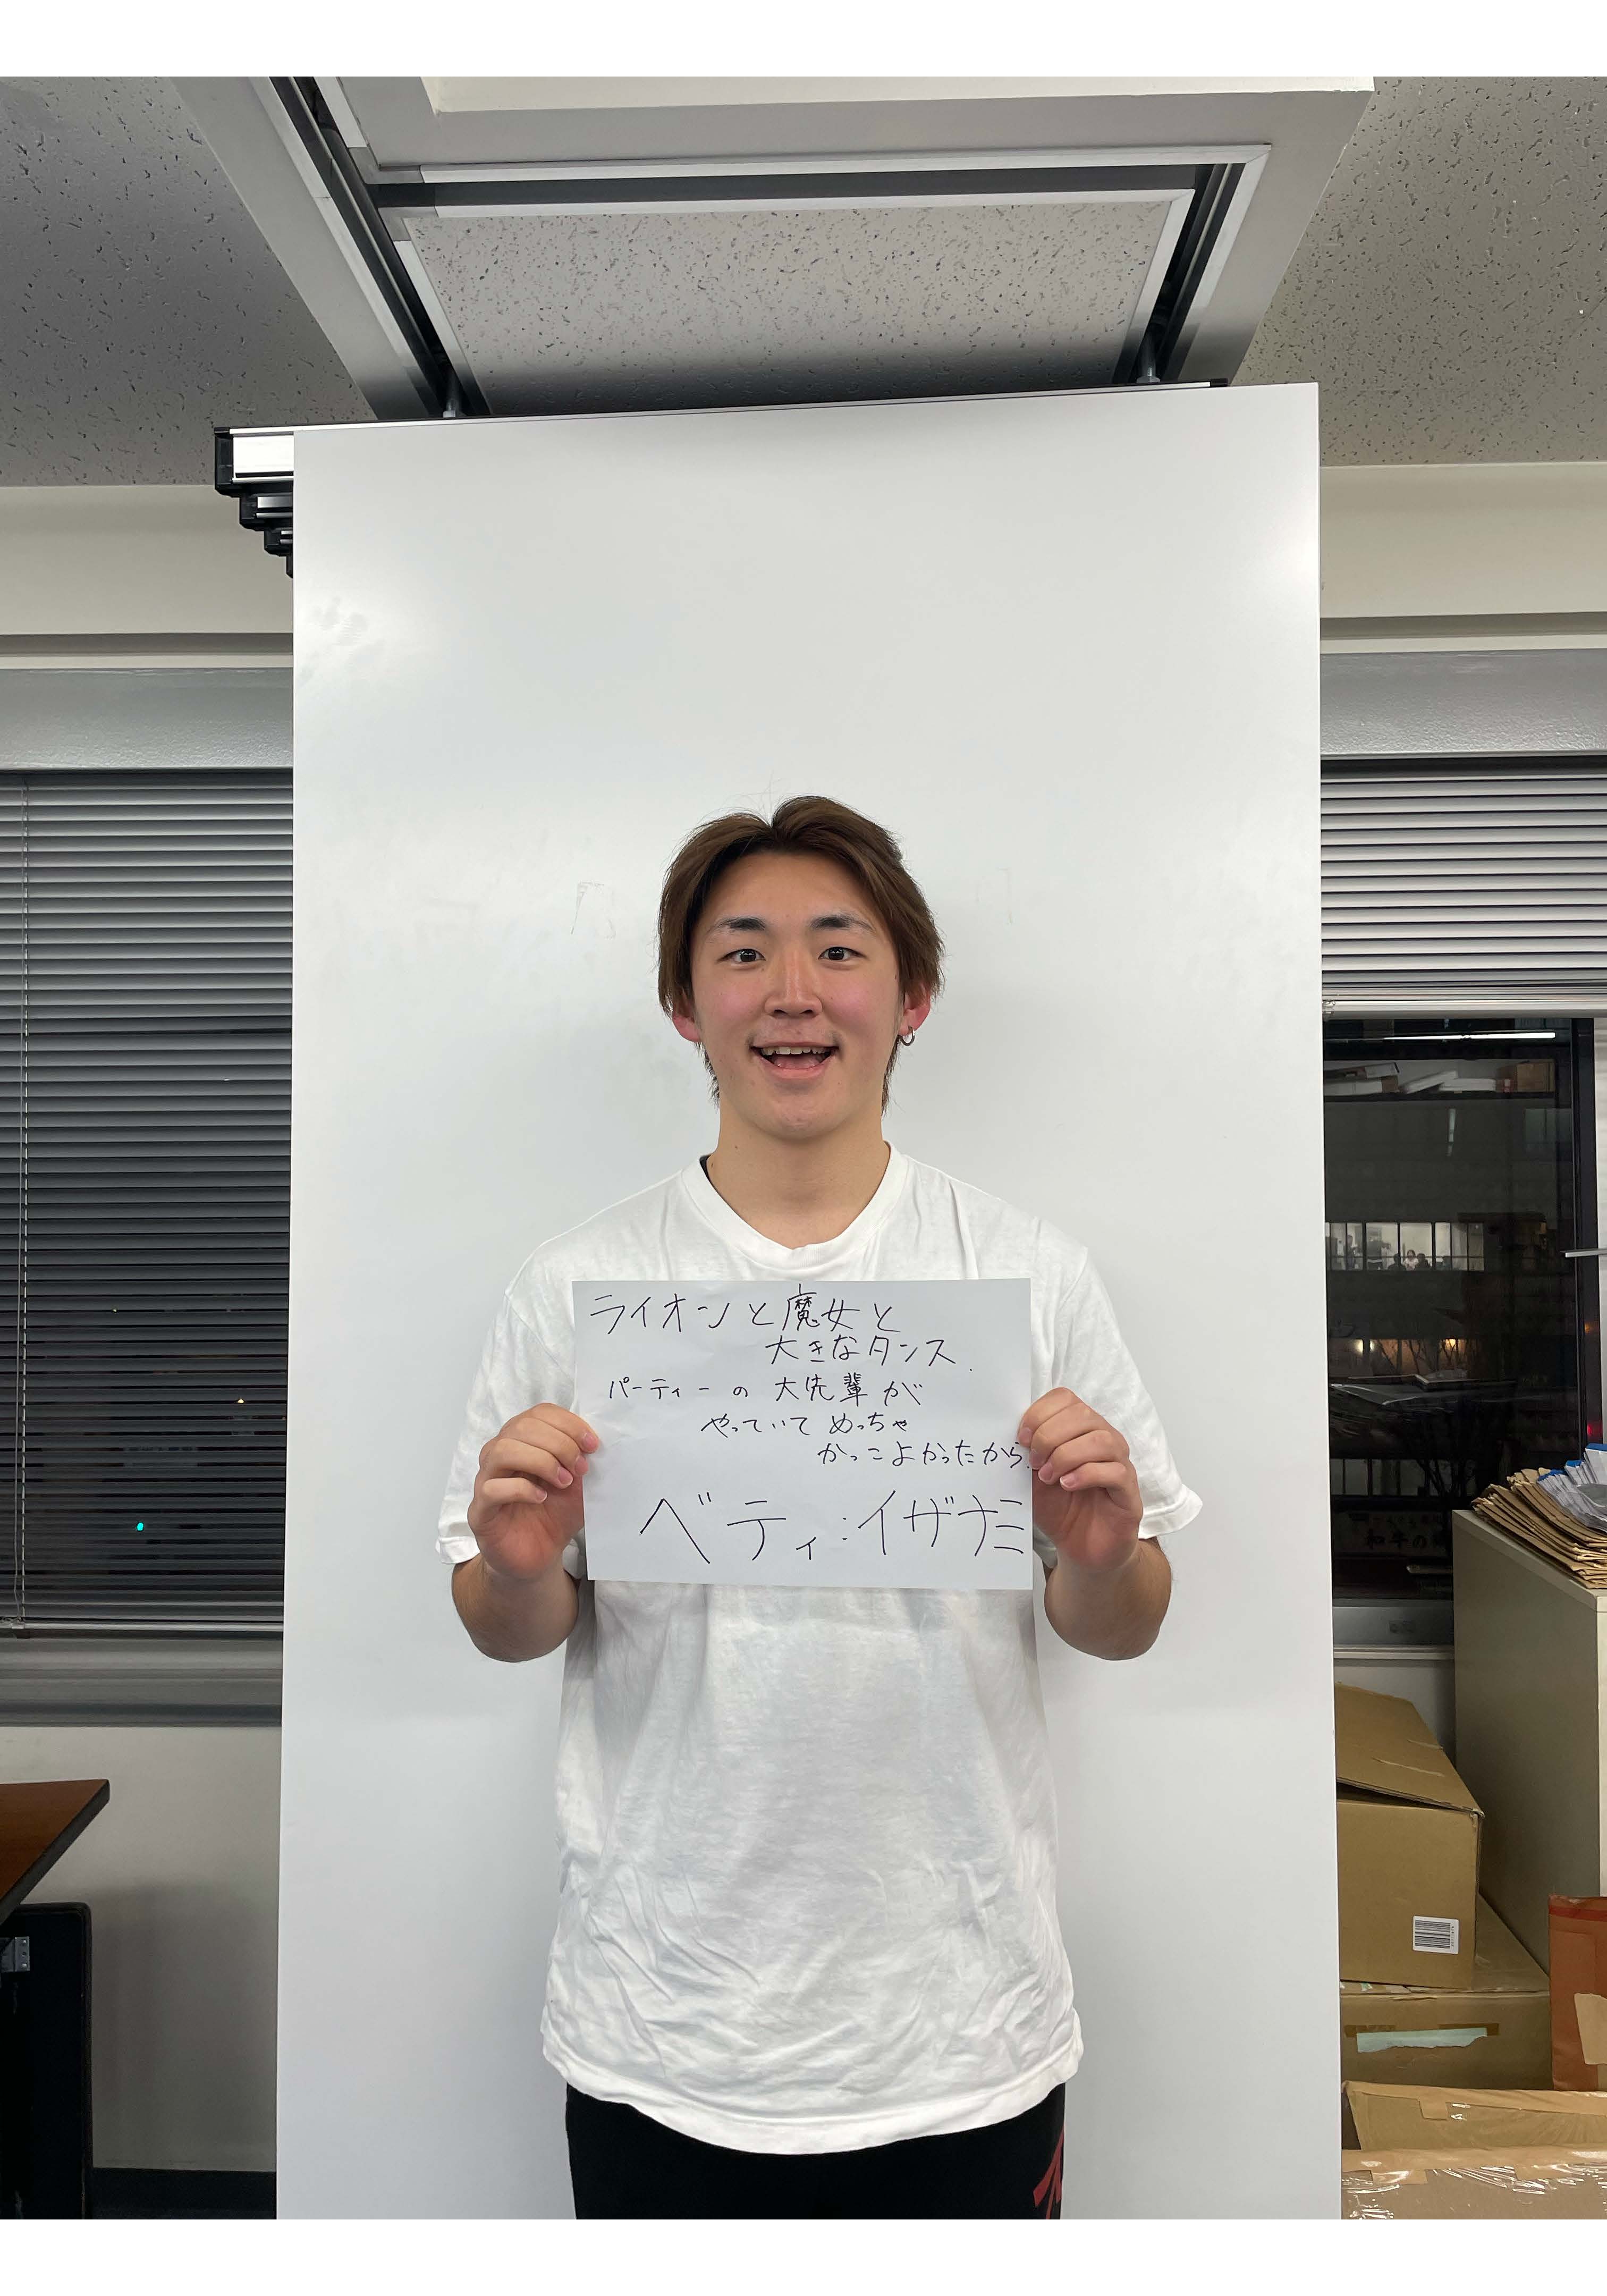 ライオンと魔女と
大きなタンス.
パーティーの大先輩が
やっていてめっちゃ
かっこよかったから.
ベティ:イザナミ